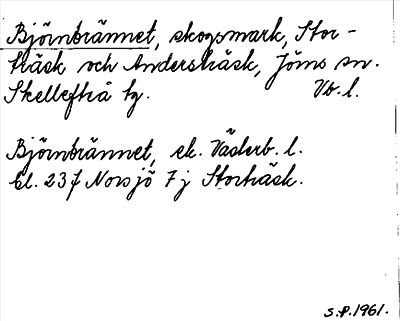 Björnbrännet, skogsmark, Stor-
träsk och Andersträsk, Jörns sn.
Skellefteå tg. Vb. l.
Björnbrännet, ek. Västerb. l.
bl. 23 f Norsjö 7 j Storträsk.
S.P. 1961.